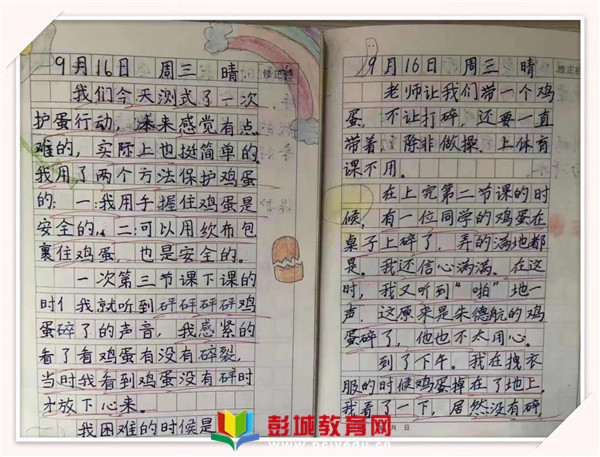 9月16日 周三 晴 修正栏
我们今天测式了一次
护蛋行动，本来感觉有点
难的，实际上也挺简单的
我用了两个方法保护鸡蛋
的：一：我用手握住鸡蛋是
安全的。二：可以用软布包
裹住鸡蛋，也是安全的。
一次第三节课下课的
时亻我就听到砰砰砰砰鸡
蛋碎了的声音，我感紧的
看了看鸡蛋有没有碎裂，
当时我看到鸡蛋没有碎时
才放下心来。
我困难的时候是
9月16日 周三 晴 修正栏
老师让我们带一个鸡
蛋，不让打碎，还要一直
带着，除非做操、上体育
课不用。
在上完第二节课的时
候，有一位同学的鸡蛋在
桌子上碎了，弄的满地都
是。我还信心满满。在这
时，我又听到“啪”地一
声，这原来是朱德航的鸡
蛋碎了，他也不太用心。
到了下午。我在拽衣
服的时候鸡蛋掉在了地上，
我看了一下，居然没有碎
月 日
彭城教育网